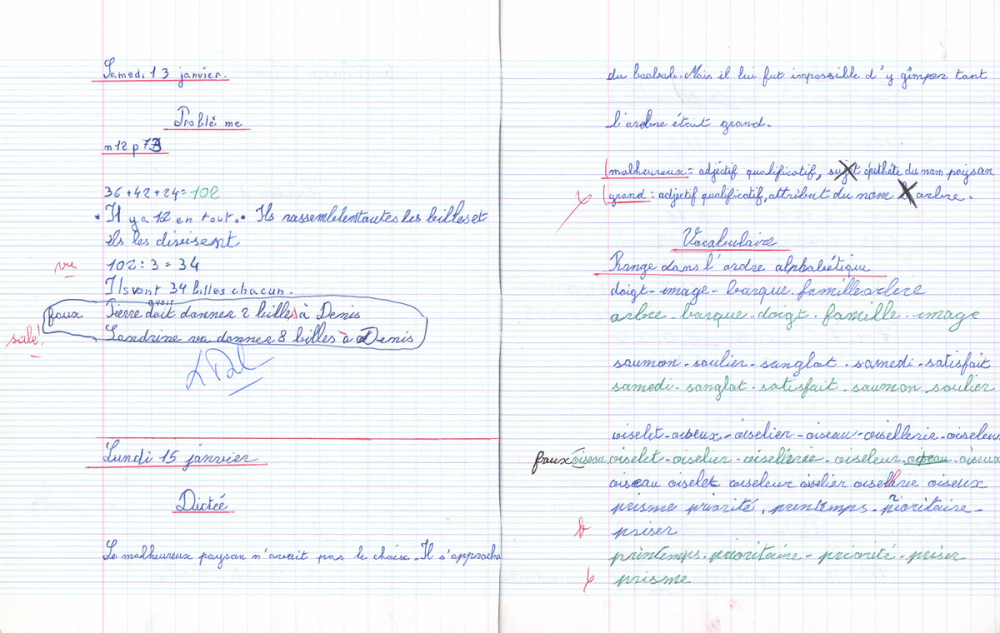 Samedi 13 janvier.
Problème
n12 p 73
36 + 42 + 24 = 102
Il y a 102 en tout. Ils rassemblent toutes les billes et
ils les divisent
vu
102 : 3 = 34
Ils vont 34 billes chacun.
faux Pierre doit donner 2 billes à Denis
sale! Sandrine va donner 8 billes à Denis
Lundi 15 janvier
Dictée
Le malheureux paysan n'avait pas le choix. Il s'approcha
du baobab. Mais il lui fut impossible d'y grimper tant
l'arbre était grand.
malheureux = adjectif qualificatif, épithète du nom paysan
grand : adjectif qualificatif, attribut du nom arbre.
Vocabulaire
Range dans l'ordre alphabétique
doigt - image - barque - famille arbre
arbre - barque - doigt - famille - image
saumon - soulier - sanglot - samedi - satisfait
samedi - sanglot - satisfait - saumon - soulier
oiselet - oiseux - oiselier - oiseau - oisellerie - oiseleur
faux oiseau oiselet - oiselier - oisellerie - oiseleur - oiseux
oiseau oiselet oiseleur oiselier oisellerie oiseux
prisme priorité, printemps - prioritaire -
priser
printemps. prioritaire - priorité - priser
prisme